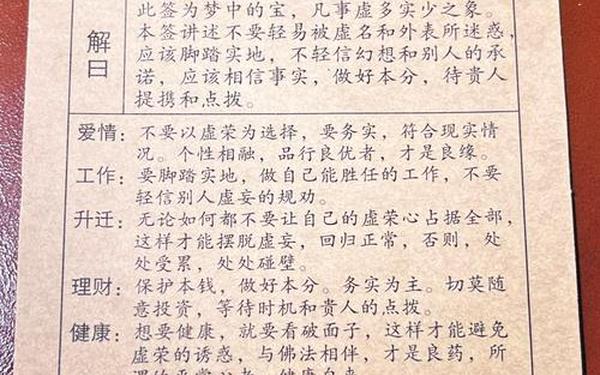 解曰
此签为梦中的宝，凡事虚多实少之象。
本签讲述不要轻易被虚名和外表所迷惑，
应该脚踏实地，不轻信幻想和别人的承
诺，应该相信事实，做好本分，待贵人
提携和点拨。
爱情：不要以虚荣为选择，要务实，符合现实情
况。个性相融，品行良优者，才是良缘。
工作：要脚踏实地，做自己能胜任的工作，不要
轻信别人虚妄的规劝。
升迁：无论如何都不要让自己的虚荣心占据全部，
这样才能摆脱虚妄，回归正常，否则，处
处受累，处处碰壁。
理财：保护本钱，做好本分。务实为主。切莫随
意投资，等待时机和贵人的点拨。
健康：想要健康，就要看破面子，这样才能避免
虚荣的诱惑，与佛法相伴，才是良药，所